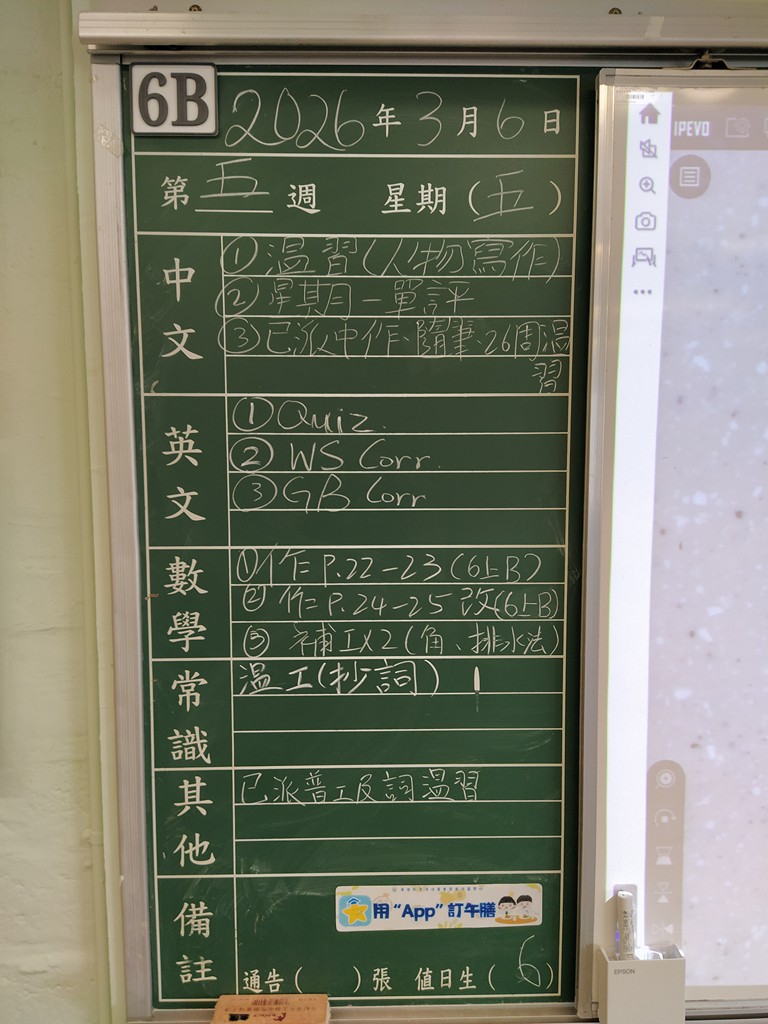 6B
2026年3月6日
第五週 星期(五)
中文
①溫習(人物寫作)
②星期一單評
③已派中作、隨筆、26周溫
習
英文
①Quiz.
②WS Corr.
③GB Corr
數學
①作P.22-23(6上B)
②作P.24-25改(6上B)
③補工X2(角、排水法)
常識
溫工(抄詞)
其他
已派普工及詞溫習
備註
用“App”訂午膳
通告( )張 值日生(6)
IPEVO
EPSON